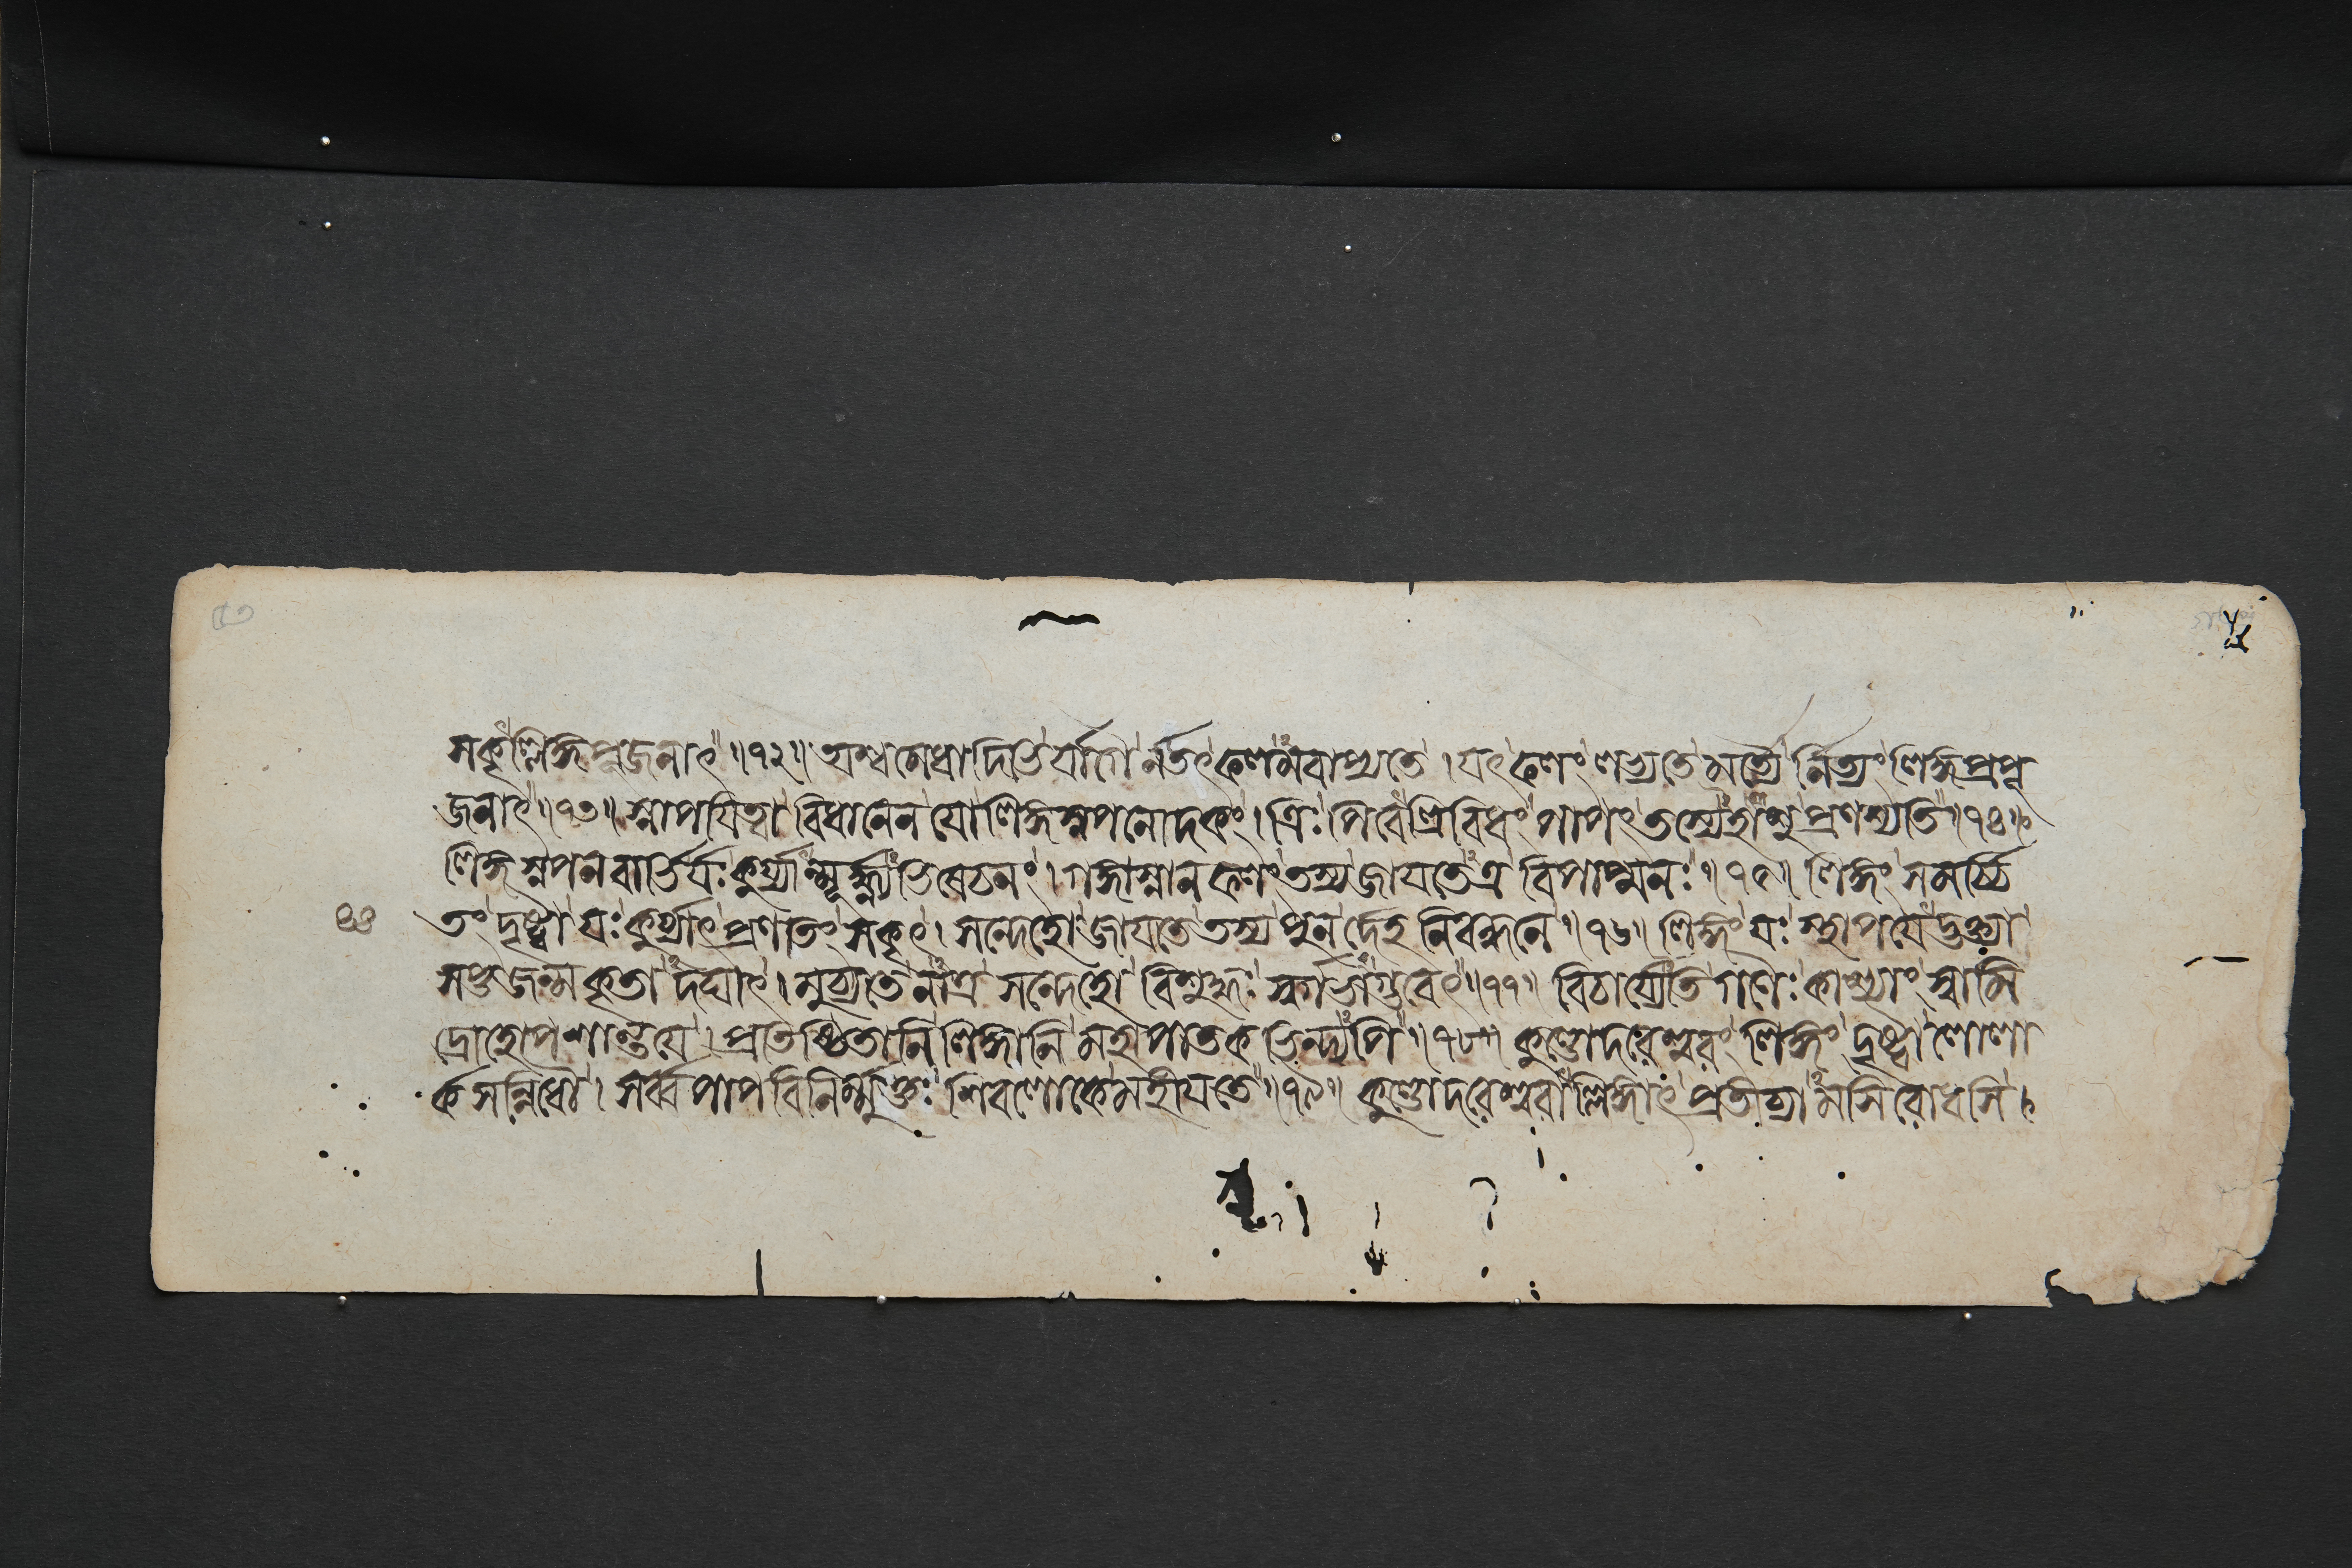 সকৃল্লিঙ্গপূজনাৎ ॥১২॥ অশ্বমেধাদিভির্যাগৈর্নতৎফলমবাপ্যতে । যৎফলং লভ্যতে মর্ত্যৈর্নিত্যং লিঙ্গপ্রপূ
জনাৎ ॥১৩॥ স্নাপযিত্বা বিধানেন যো লিঙ্গস্নপনোদকং । ত্রিঃ পিবেত্ত্রিবিধং পাপং তস্যেহাশু প্রণশ্যতি ॥১৪॥
লিঙ্গস্নপনবার্ভির্যঃ কুর্য্যান্মূর্দ্ধ্ন্যভিষেচনং । গঙ্গাস্নানফলং তস্য জাযতেত্র বিপাপ্মনঃ ॥১৫॥ লিঙ্গং সমর্চ্চি
তং দৃষ্ট্বা যঃ কুর্য্যাৎ প্রণতিং সকৃৎ । সন্দেহো জাযতে তস্য পুনর্দেহনিবন্ধনে ॥১৬॥ লিঙ্গং যঃ স্থাপযেদ্ভক্ত্যা
সপ্তজন্মকৃতাদঘাৎ । মুচ্যতে নাত্র সন্দেহো বিশুদ্ধঃ স্বর্গভাগ্ভবেৎ ॥১৭॥ বিচার্য্যেতি গণৈঃ কাশ্যাং স্বামি
দ্রোহোপশান্তযে । প্রতিষ্ঠিতানি লিঙ্গানি মহাপাতকভিন্ত্যপি ॥১৮॥ কুণ্ডোদরেশ্বরং লিঙ্গং দৃষ্ট্বা লোলা
র্কসন্নিধৌ । সর্ব্বপাপবিনির্ম্মুক্তঃ শিবলোকে মহীযতে ॥১৯॥ কুণ্ডোদরেশ্বরাল্লিঙ্গাৎ প্রতীচ্যামসিরোধসি ।